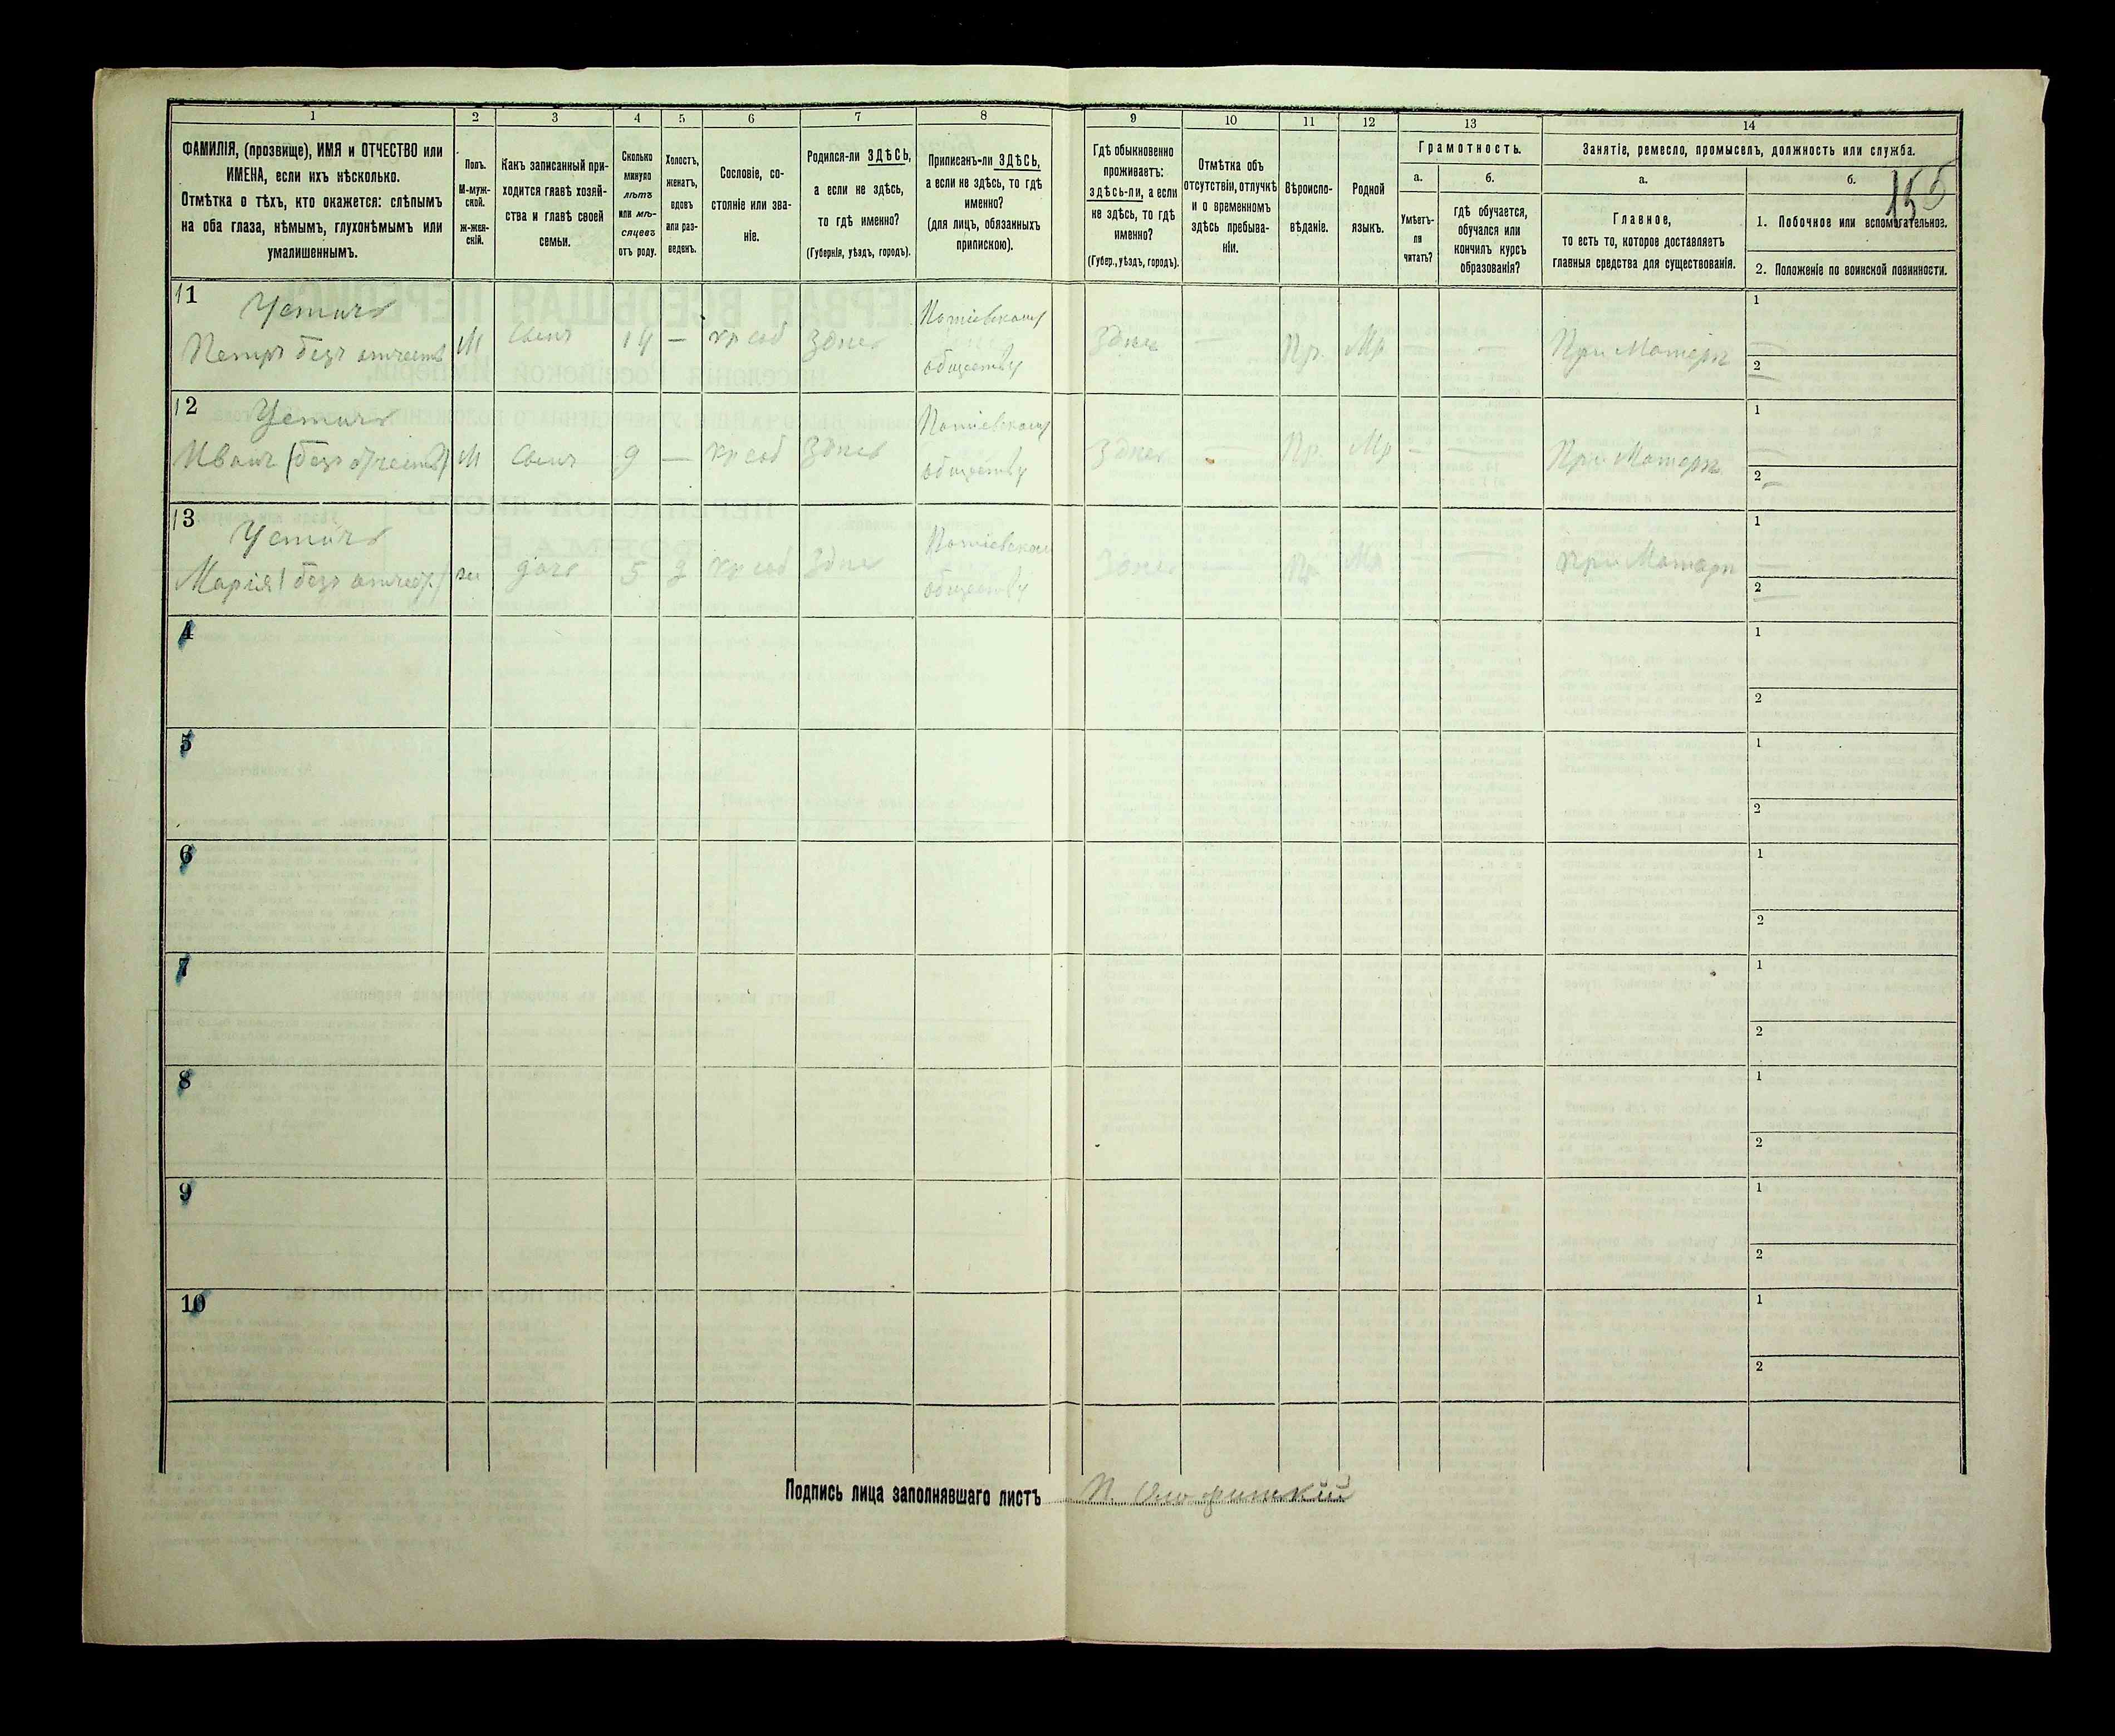 1 2 3 4 5 6 7 8 9 10 11 12 13 14
ФАМИЛІЯ, (прозвище), ИМЯ и ОТЧЕСТВО или
ИМЕНА, если ихъ нѣсколько.
Отмѣтка о тѣхъ, кто окажется: слѣпымъ
на оба глаза, нѣмымъ, глухонѣмымъ или
умалишеннымъ.
Полъ.
М-муж-
ской.
Ж-жен-
скій.
Какъ записанный при-
ходится главѣ хозяй-
ства и главѣ своей
семьи.
Сколько
минуло
лѣтъ
или мѣ-
сяцевъ
отъ роду.
Холостъ,
женатъ,
вдовъ
или раз-
веденъ.
Сословіе, со-
стояніе или зва-
ніе.
Родился-ли ЗДѢСЬ,
а если не здѣсь,
то гдѣ именно?
(Губернія, уѣздъ, городъ).
Приписанъ-ли ЗДѢСЬ,
а если не здѣсь, то гдѣ
именно?
(для лицъ, обязанныхъ
припискою).
Гдѣ обыкновенно
проживаетъ:
здѣсь-ли, а если
не здѣсь, то гдѣ
именно?
(Губер., уѣздъ, городъ).
Отмѣтка объ
отсутствіи, отлучкѣ
и о временномъ
здѣсь пребыва-
ніи.
Вѣроиспо-
вѣданіе.
Родной
языкъ.
Грамотность.
а.
Умѣетъ-
ли
читать?
б.
гдѣ обучается,
обучался или
кончилъ курсъ
образованія?
Занятіе, ремесло, промыселъ, должность или служба.
а.
Главное,
то есть то, которое доставляетъ
главныя средства для существованія.
б.
1. Побочное или вспомогательное.
2. Положеніе по воинской повинности.
11
Петръ безъ отчеств М сынъ 14 — кр соб Здѣсь обществу Здѣсь — Пр. Мр — — При Матери
1 —
2 —
12
Иванъ (безъ отчеств) М сынъ 9 — кр соб Здѣсь обществу Здѣсь — Пр. Мр — — При Матери
1
2 —
13
Марія (безъ отчест.) ж дочь 5 кр соб Здѣсь обществу Здѣсь — Пр Мр — — При Матери
1 —
2 —
4
1
2
5
1
2
6
1
2
7
1
2
8
1
2
9
1
2
10
1
2
Подпись лица заполнявшаго листъ